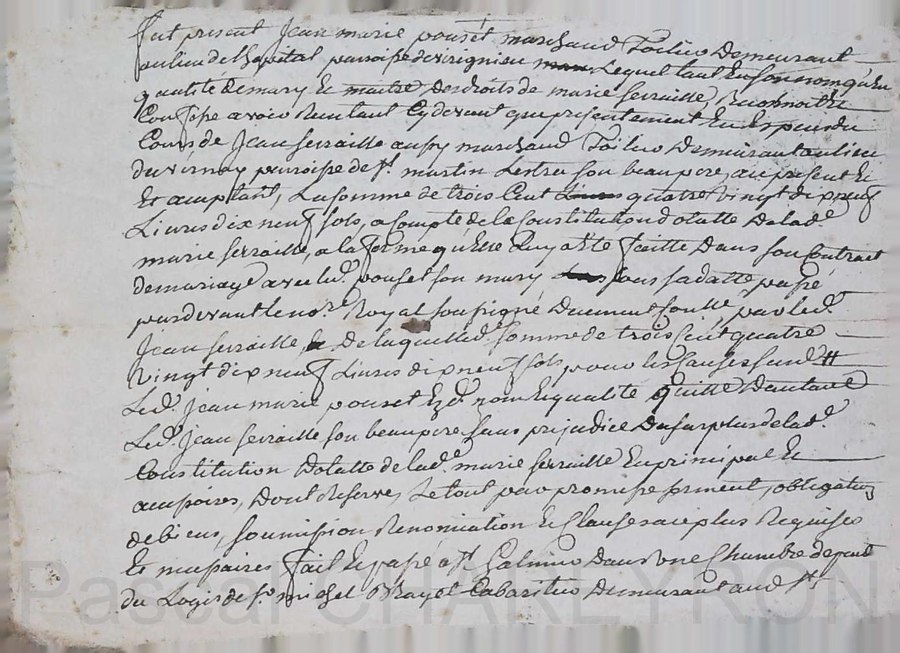 fut present Jean marie pouset marchand Toilier Demeurant
au lieu de lhopital paroisse de virignieu Lequel tant En son nom qu'En
qualité De mary Et maitre des droits de marie ferraille, Reconnoitre
Confesse avoir Recu tant Cydevant que presentement En Especes du
Cours de Jean ferraille aussy marchand Toilier Demeurant au lieu
du vernay paroisse de st. martin Lestra son beaupere, au present Et
Et acceptant, La somme de trois Cent quatre vingt dix neuf
Livres dix neuf sols, a Compte de la Constitution dotalle De lad.e
marie ferraille, a la forme qu'Elle luy a Eté faitte Dans son Contract
de mariage avec led. pouset son mary sous sa datte passé
pardevant le no.re Royal soussigné Duement Conllé, par led.
Jean ferraille, de laquelle d. somme de trois Cent quatre
vingt dix neuf Livres dix neuf sols, pour les Causes susd.
Led. Jean marie pouset Ezd. nom Et qualité quitte Dautant
Led. Jean ferraille son beaupere sans prejudice Du surplus de lad.e
Constitution Dotalle de lad.e marie ferraille En principal Et
accessoires, Dont Reserve, Le tout par promesse serment, obligation
de biens, soumission Renonciation Et Clauses a ce plus Requises
Et necessaires fait Et passé a st. Galmier Dans une Chambre
du Logis de st. michel Cabaretier Demeurant aud. st.
Pascal CHARLEYRON